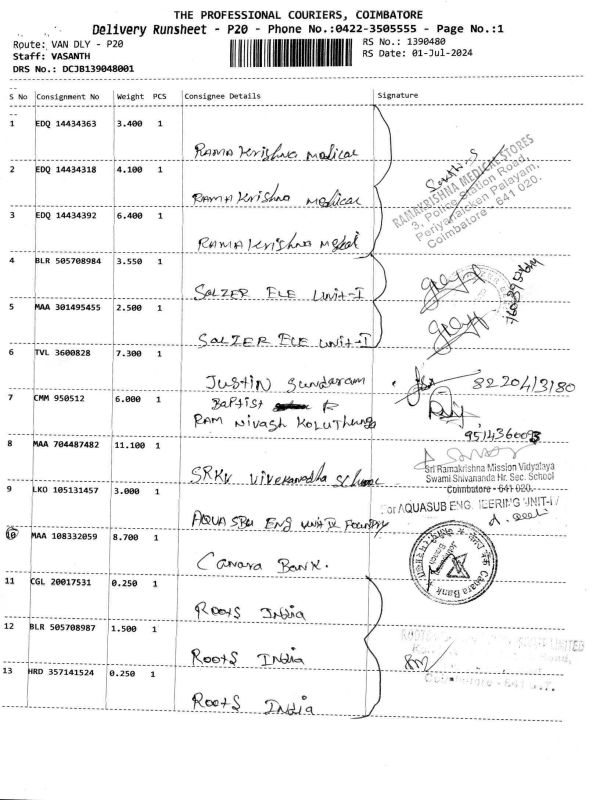 THE PROFESSIONAL COURIERS, COIMBATORE
Delivery Runsheet - P20 - Phone No.:0422-3505555 - Page No.:1
Route: VAN DLY - P20
RS No.: 1390480
Staff: VASANTH
RS Date: 01-Jul-2024
DRS No.: DCJB139048001
S No Consignment No Weight PCS Consignee Details Signature
1 EDQ 14434363 3.400 1
RAMA Krishna Medical
2 EDQ 14434318 4.100 1
RAMA Krishna Medical
RAMAKRISHNA MEDICAL STORES
3, Police Station Road,
Periyanaicken Palayam,
Coimbatore - 641 020.
3 EDQ 14434392 6.400 1
RAMA Krishna
4 BLR 505708984 3.550 1
SALZER ELE UNIT-I
5 MAA 301495455 2.500 1
SALZER ELE UNIT-I
6 TVL 3600828 7.300 1
Justin Sundaram
8220413180
7 CMM 950512 6.000 1
Baptist
RAM Nivash Koluthunga
8 MAA 704487482 11.100 1
SRKV Vivekanadha
Sri Ramakrishna Mission Vidyalaya
Swami Shivananda Hr. Sec. School
Coimbatore - 641 020.
9 LKO 105131457 3.000 1
AQUA SBU ENG UNIT IV Foundry
For AQUASUB ENGINEERING UNIT-IV
10 MAA 108332059 8.700 1
Canara Bank.
Canara Bank
11 CGL 20017531 0.250 1
Roots India
12 BLR 505708987 1.500 1
Roots India
13 HRD 357141524 0.250 1
Roots India